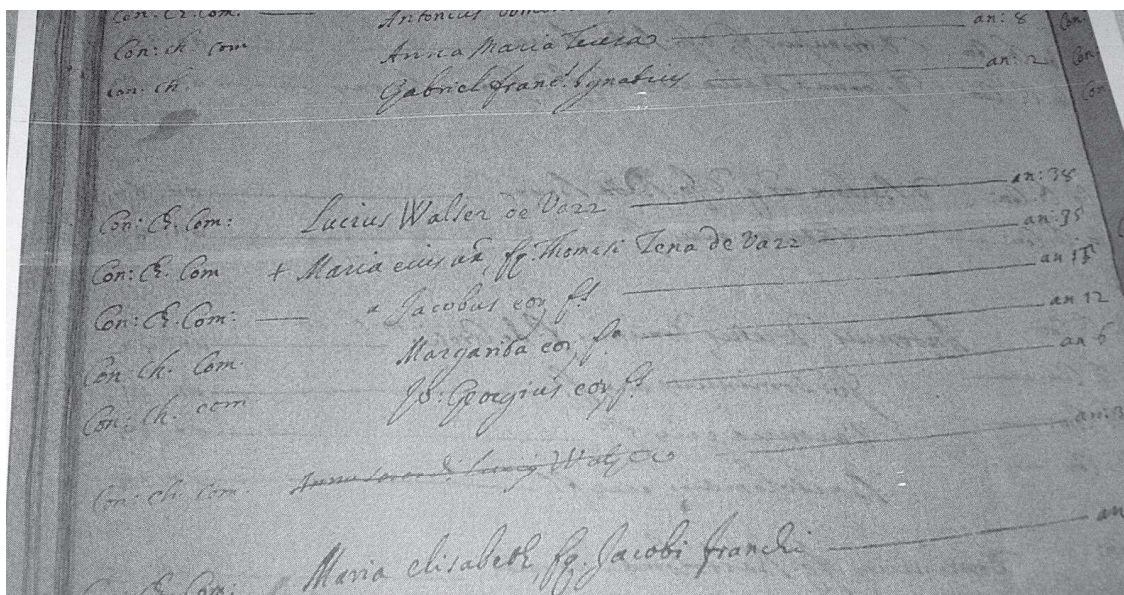 Con: Ch. Com. Antonius
Con: ch. com Anna Maria Teresa an: 8
Con: ch. Gabriel franc: Ignatius an: 2
Con: Ch. Com: Lucius Walser de Vazz an: 38
Con: Ch. Com + Maria eius ux, fq. Thomasi Tena de Vazz an: 35
Con: Ch. Com: Jacobus eor, fs an
Con: Ch. Com Margarita eor, fa an 12
Con: Ch. com Jo: Georgius eor, fs an 6
Con: ch. Com. an: 3
Con: Ch. Com: Maria elisabeth fq. Jacobi franchi an